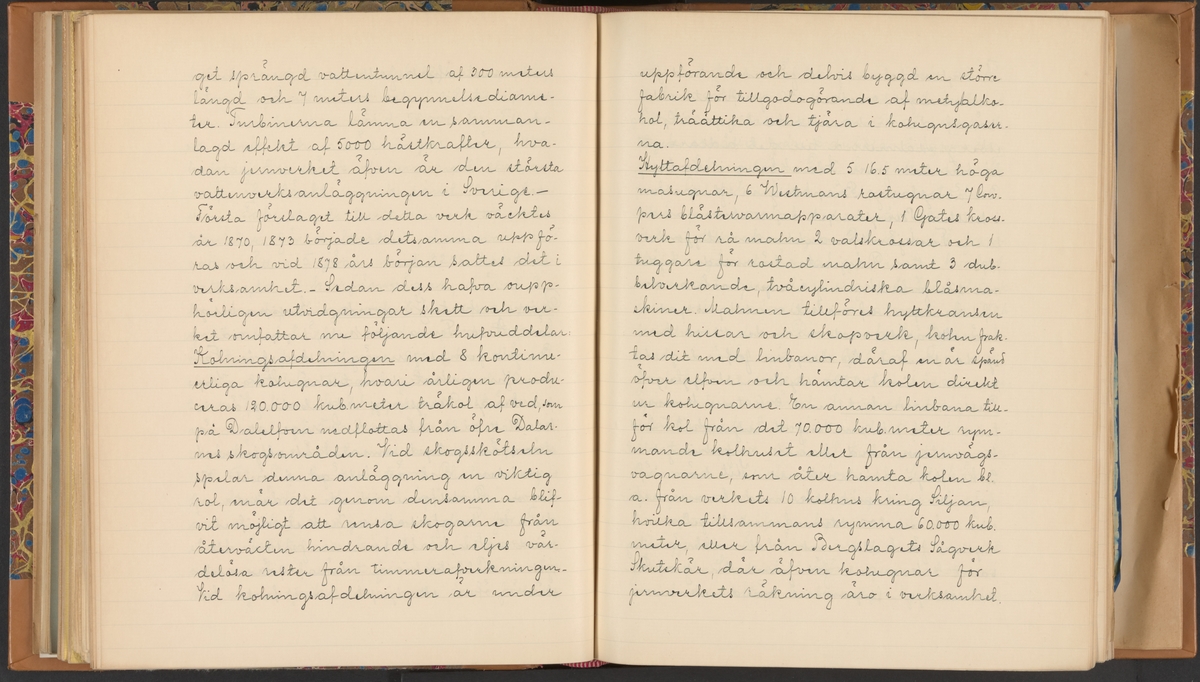 get sprängd vattentunnel af 500 meters
längd och 7 meters begynnelsediame-
ter. Turbinerna lämna en samman-
lagd effekt af 5000 hästkrafter, hva-
dan jernverket äfven är den största
vattenverksanläggningen i Sverige.-
Första förslaget till detta verk väcktes
år 1870, 1873 började detsamma uppfö-
ras och vid 1878 års början sattes det i
verksamhet. - Sedan dess hafva oupp-
hörligen utvidgningar skett och ver-
ket omfattar nu följande hufvuddelar:
Kolningsafdelningen med 8 kontinu-
erliga kolugnar, hvari årligen produ-
ceras 120.000 kub.meter träkol af ved, som
på Dalelfven nedflottas från öfre Dalar-
nes skogsområden. Vid skogsskötseln
spelar denna anläggning en viktig
rol, enär det genom densamma blif-
vit möjligt att rensa skogarne från
återväxten hindrande och eljes vär-
delösa rester från timmerafverkningen.-
Vid kolningsafdelningen är under
uppförande och delvis byggd en större
fabrik för tillgodogörande af metylalko-
hol, träättika och tjära i kolugnsgaser-
na.
Hyttafdelningen med 5 16.5 meter höga
masugnar, 6 Westmans rostugnar 7 Cow-
pers blästervarmapparater, 1 Gates kross-
verk för rå malm 2 valskrossar och 1
tuggare för rostad malm samt 3 dub-
belverkande, tvåcylindriska blåsma-
skiner. Malmen tillföres hyttkransen
med hissar och skopverk, kolen frak-
tas dit med linbanor, däraf en är spänd
öfver elfven och hämtar kolen direkt
ur kolugnarne. En annan linbana till-
för kol från det 70.000 kub.meter rym-
mande kolhuset eller från jernvägs-
vagnarne, som åter hämta kolen bl.
a. från verkets 10 kolhus kring Siljan,
hvilka tillsammans rymma 60.000 kub.
meter, eller från Bergslagets Sågverk
Skutskär, där äfven kolugnar för
jernverkets räkning äro i verksamhet.